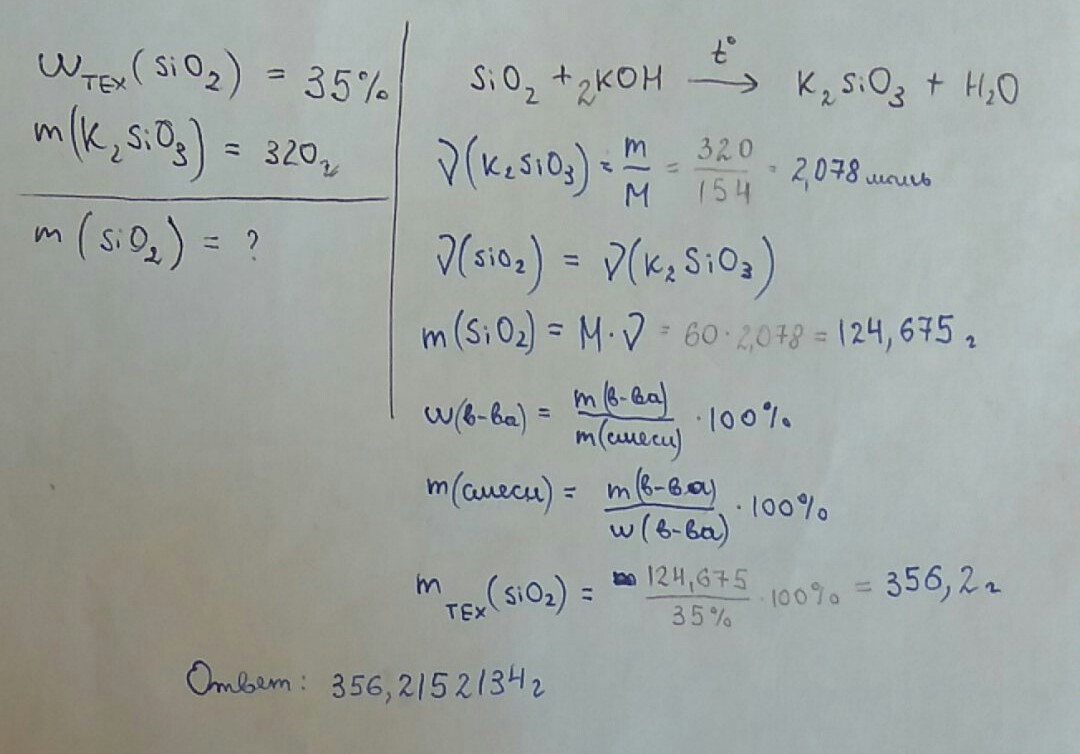 W_TEX (SiO₂) = 35%
m(K₂SiO₃) = 320г
m (SiO₂) = ?
SiO₂ + 2KOH —t°→ K₂SiO₃ + H₂O
ν(K₂SiO₃) = m/M = 320/154 = 2,078 моль
ν(SiO₂) = ν(K₂SiO₃)
m(SiO₂) = M·ν = 60·2,078 = 124,675 г
w(в-ва) = m(в-ва)/m(смеси) ·100%
m(смеси) = m(в-ва)/w(в-ва) ·100%
m_TEX (SiO₂) = 124,675/35% ·100% = 356,2 г
Ответ: 356,2152134 г